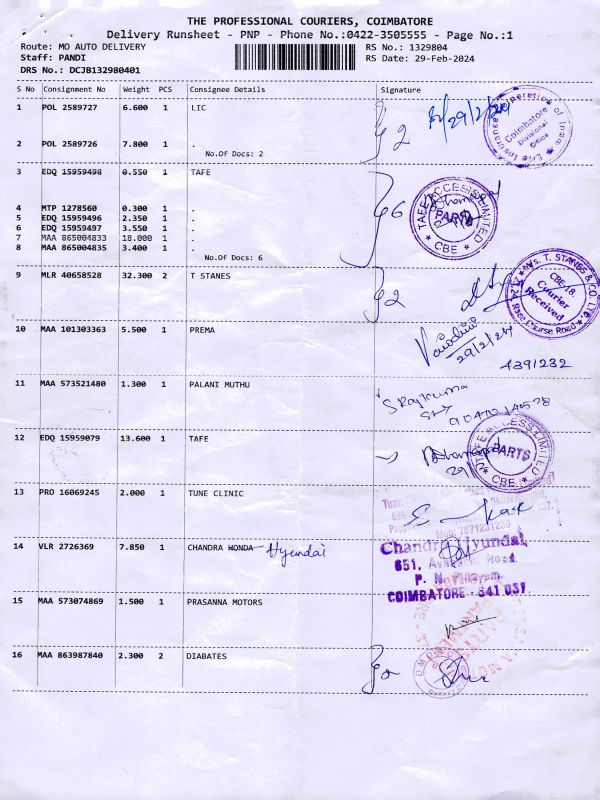 THE PROFESSIONAL COURIERS, COIMBATORE
Delivery Runsheet - PNP - Phone No.:0422-3505555 - Page No.:1
Route: MO AUTO DELIVERY
RS No.: 1329804
Staff: PANDI
RS Date: 29-Feb-2024
DRS No.: DCJB132980401
S No Consignment No Weight PCS Consignee Details Signature
1 POL 2589727 6.600 1 LIC
29/2/24
2 POL 2589726 7.800 1 .
No.Of Docs: 2
2
Coimbatore
Divisional
Office
3 EDQ 15959498 0.550 1 TAFE
4 MTP 1278560 0.300 1 .
5 EDQ 15959496 2.350 1 .
6 EDQ 15959497 3.550 1 .
7 MAA 865004833 18.000 1 .
8 MAA 865004835 3.400 1 .
No.Of Docs: 6
6
TAFE ACCESS LIMITED
PARTS
CBE
9 MLR 40658528 32.300 2 T STANES
2
M/s. T. STANES & CO. LTD.
CBE-18.
Courier
Received
Race Course Road
10 MAA 101303363 5.500 1 PREMA
29/2/24
4391232
11 MAA 573521480 1.300 1 PALANI MUTHU
S Rajkumar
12 EDQ 15959079 13.600 1 TAFE
TAFE ACCESS LIMITED
PARTS
CBE
13 PRO 16069245 2.000 1 TUNE CLINIC
14 VLR 2726369 7.850 1 CHANDRA HONDA Hyundai
Chandra Hyundai
651, Avanashi Road
COIMBATORE - 641 037.
15 MAA 573074869 1.500 1 PRASANNA MOTORS
16 MAA 863987840 2.300 2 DIABATES